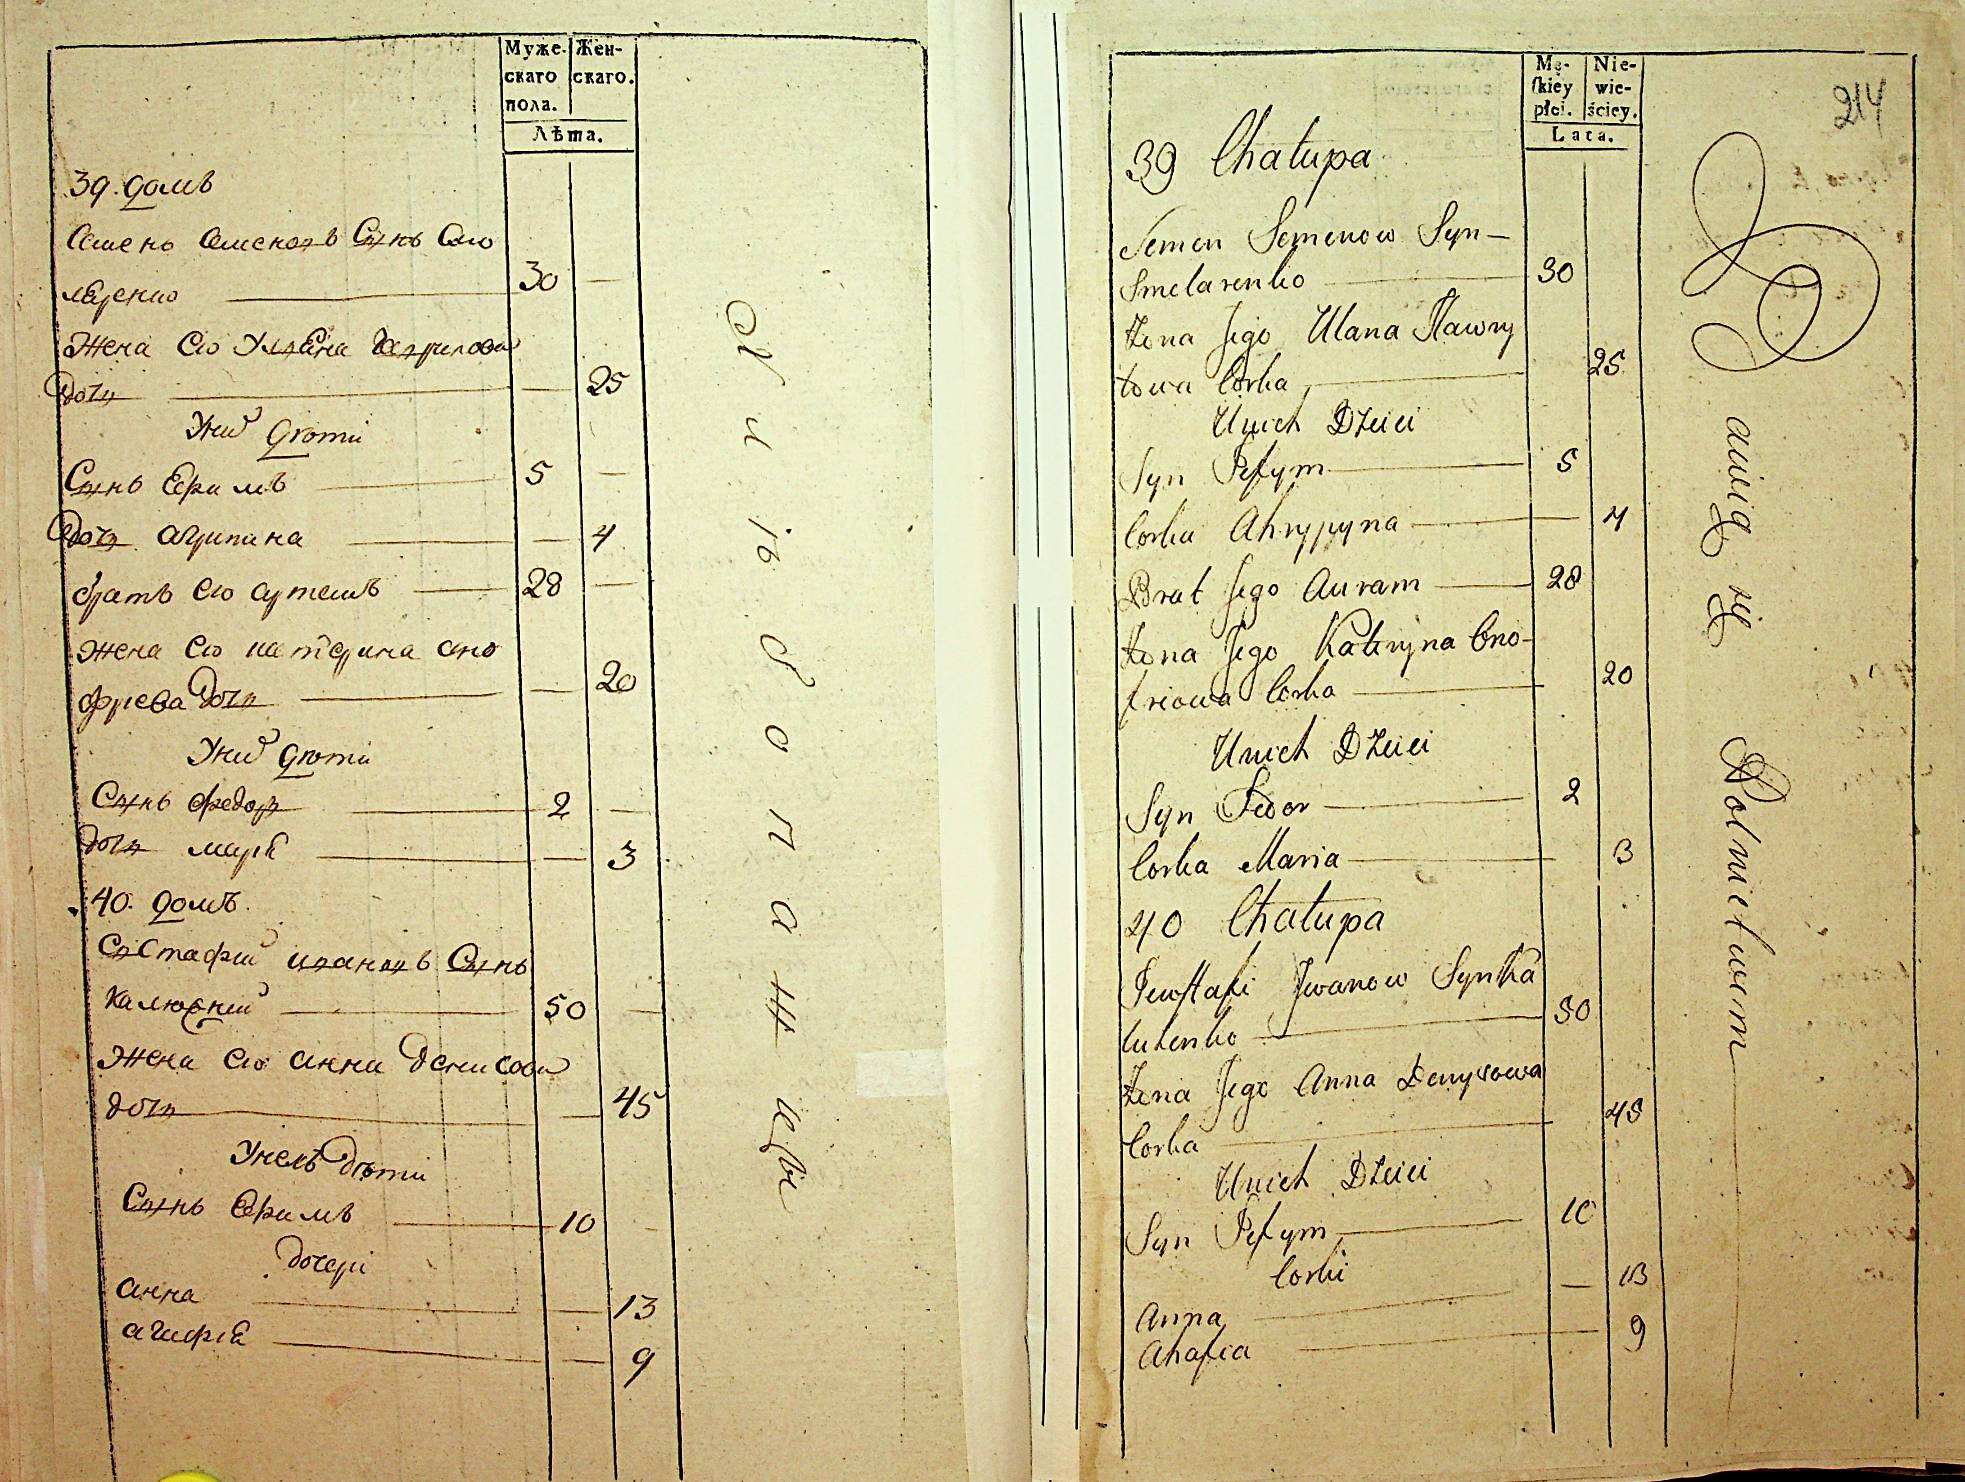 Муже-
скаго
пола.
Жен-
скаго.
Лѣта.
39. домъ
Семенъ Семеновъ Сынъ Смо
ляренко 30 —
Жена Его Ульяна
дочь — 25
У них дѣти
Сынъ Ефимъ 5 —
дочь агрипина — 4
братъ Его артемъ 28 —
жена Его катерина ано
фріева дочь — 20
У них дѣти
Сынъ федор 2 —
дочь марія — 3
40. домъ.
Евстафій ивановъ Сынъ
калюжний 50 —
жена Его анна денисова
дочь — 45
У нихъ дѣти
Сынъ Ефимъ 10 —
дочери
анна — 13
агафія — 9
Mę-
skiey
płci.
Nie-
wie-
ściey.
Lata.
214
39 Chałupa
Semen Semenow Syn—
Smelarenko 30
Żona Jego Ulana Hawry
łowa Corka 25
U nich Dzieci
Syn Jefym 5
Corka Ahrypyna 4
Brat Jego Auram 28
Żona Jego Kateryna Ono-
friowa Corka 20
U nich Dzieci
Syn Fedor 2
Corka Maria 3
40 Chałupa
Jewstafi Jwanow Syn Ka
luzenko 50
Żona Jego Anna Denysowa
Corka 45
U nich Dzieci
Syn Jefym 10
Corki — 13
Anna
Ahafia 9
aiuią się